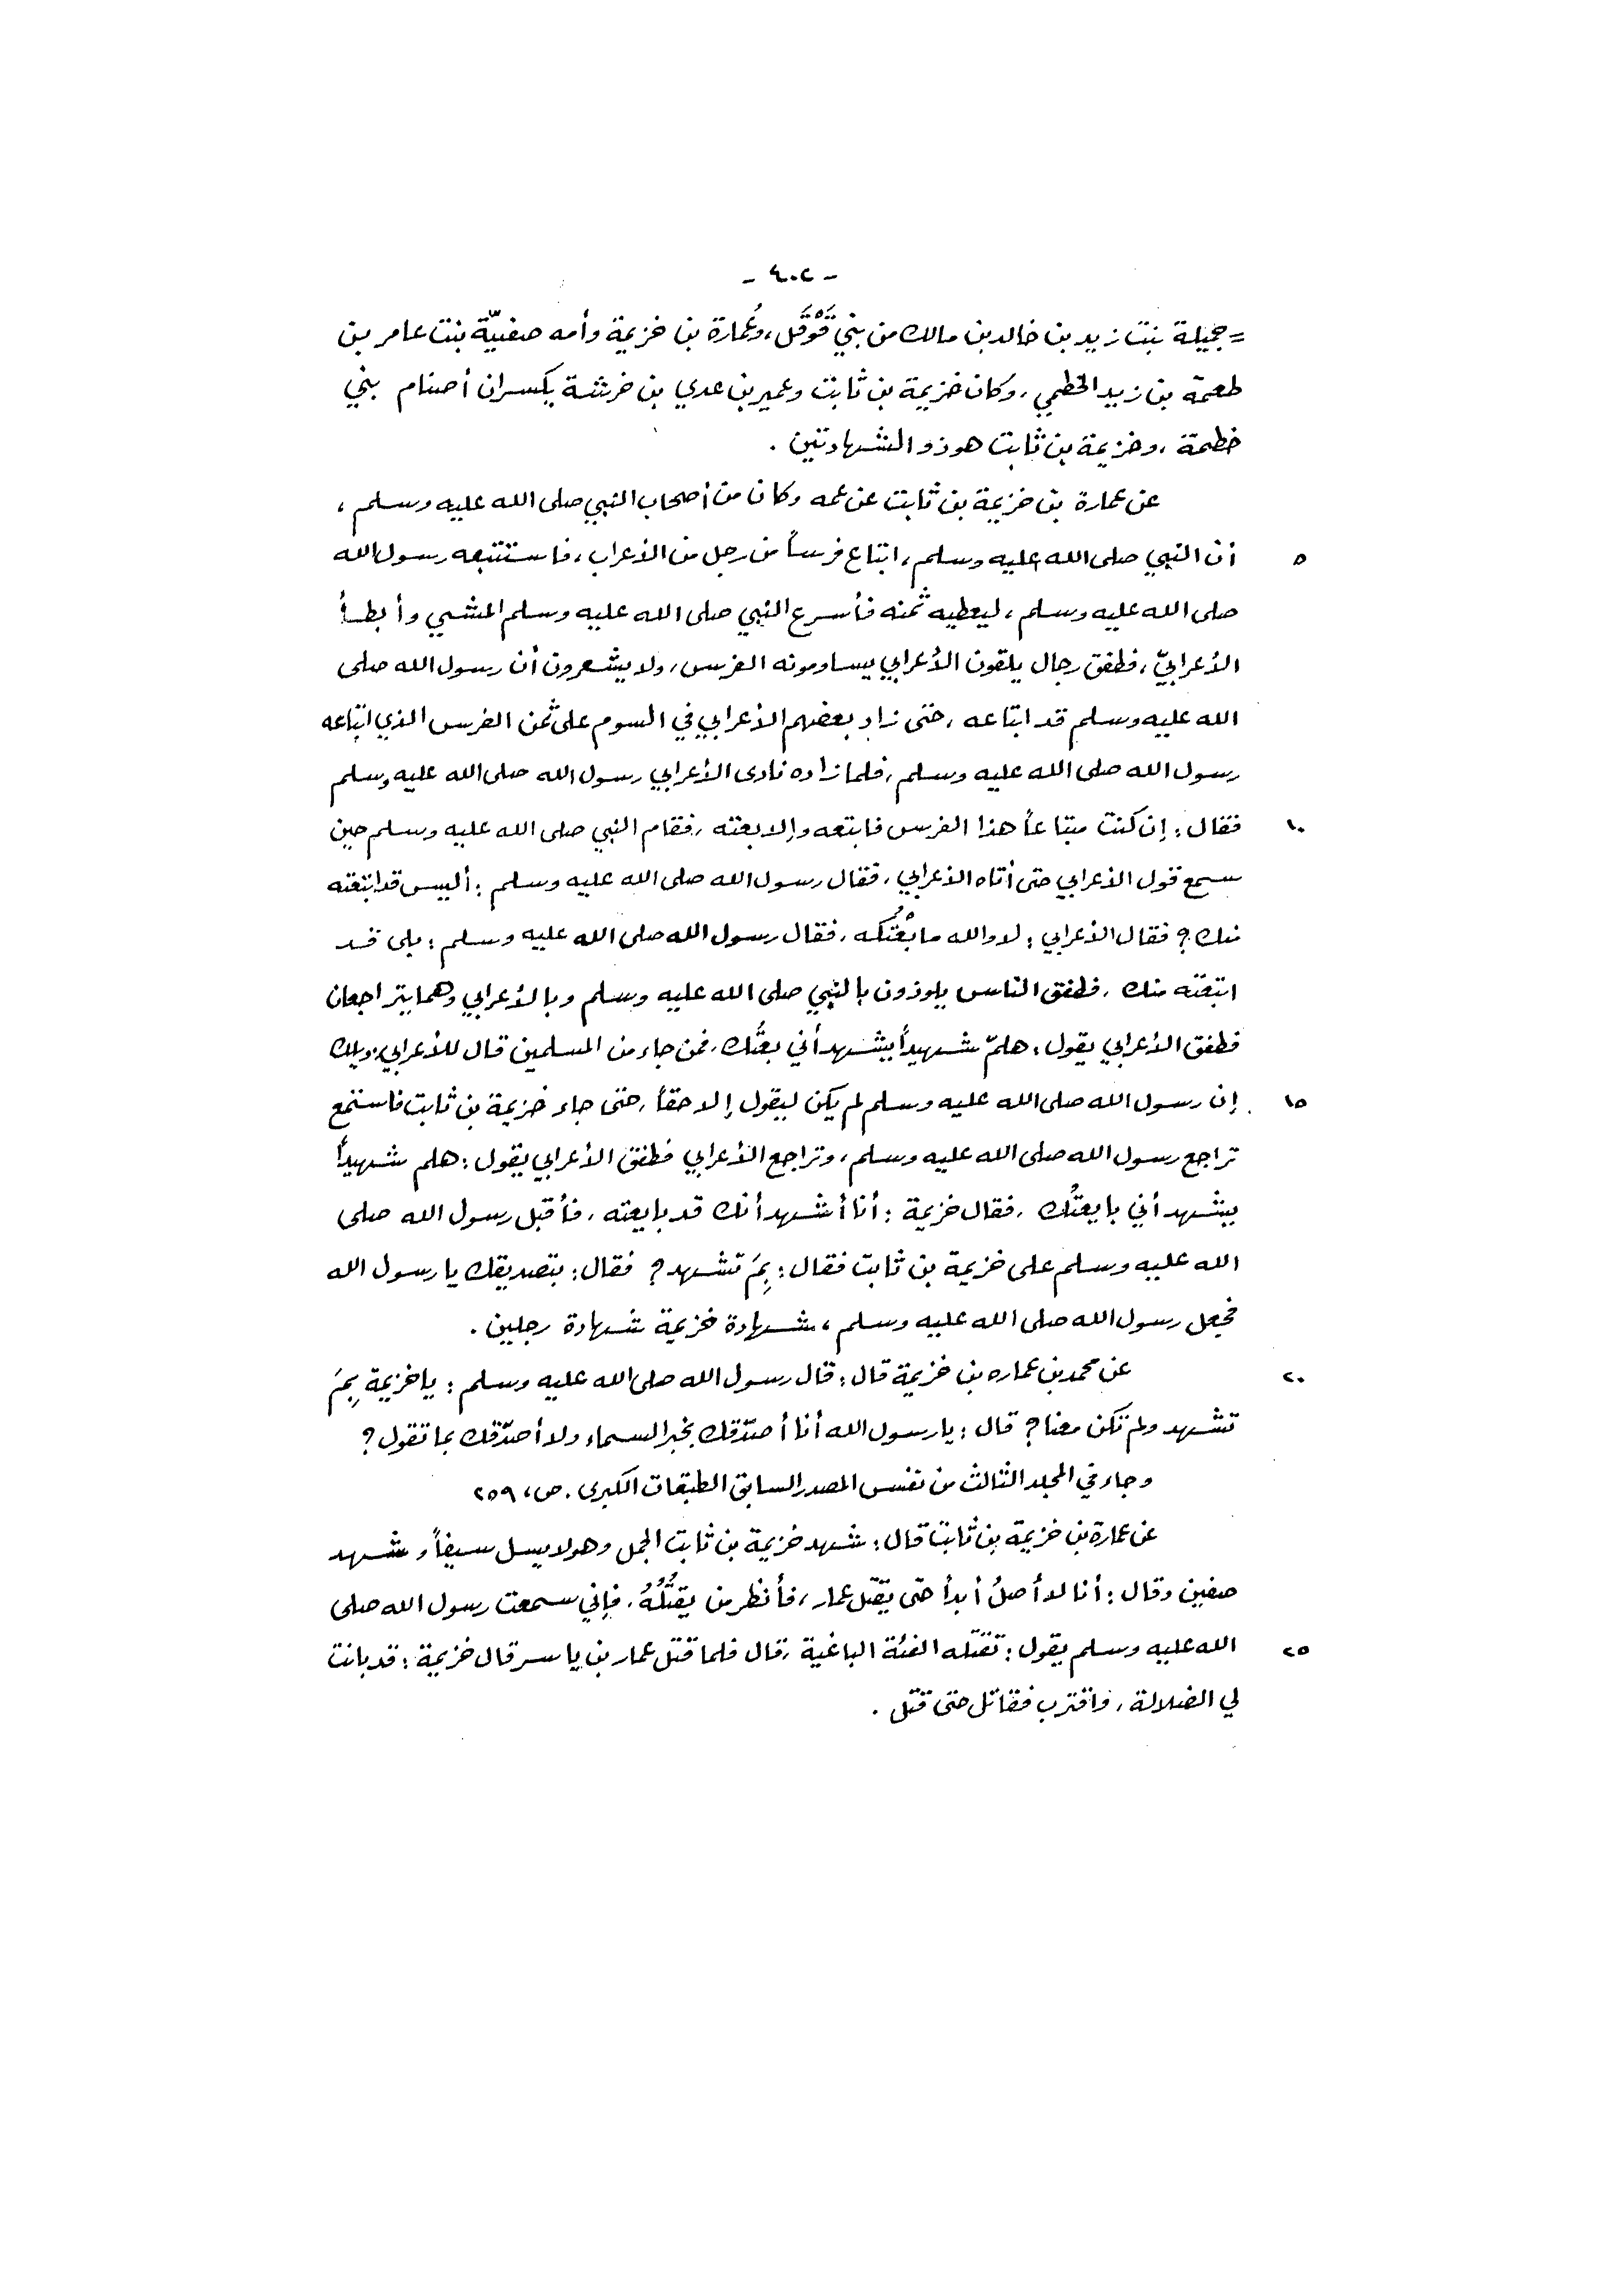 - ٤٠٢ -
= جميلة بنت زيد بن خالد بن مالك من بني قَوْقَل، وعُمارة بن خزيمة وأمه صفيّة بنت عامر بن
طعمة بن زيد الخطمي، وكان خزيمة بن ثابت وعمير بن عدي بن خرشة يكسران أصنام بني
خطمة، وخزيمة بن ثابت هو ذو الشهادتين.
عن عمارة بن خزيمة بن ثابت عن عمه وكان من أصحاب النبي صلى الله عليه وسلم،
٥ أن النبي صلى الله عليه وسلم، ابتاع فرساً من رجل من الأعراب، فاستتبعه رسول الله
صلى الله عليه وسلم، ليعطيه ثمنه فأسرع النبي صلى الله عليه وسلم المشي وأبطأ
الأعرابيّ، فطفق رجال يلقون الأعرابي يساومونه الفرس، ولا يشعرون أن رسول الله صلى
الله عليه وسلم قد ابتاعه، حتى زاد بعضهم الأعرابي في السوم على ثمن الفرس الذي ابتاعه
رسول الله صلى الله عليه وسلم، فلما زاده نادى الأعرابي رسول الله صلى الله عليه وسلم
١٠ فقال: إن كنت مبتاعاً هذا الفرس فابتعه وإلا بعته، فقام النبي صلى الله عليه وسلم حين
سمع قول الأعرابي حتى أتاه الأعرابي، فقال رسول الله صلى الله عليه وسلم: أليس قد ابتعته
منك؟ فقال الأعرابي: لا والله ما بعْتُكه، فقال رسول الله صلى الله عليه وسلم: بلى قد
ابتعته منك، فطفق الناس يلوذون بالنبي صلى الله عليه وسلم وبالأعرابي وهما يتراجعان
فطفق الأعرابي يقول: هلمّ شهيداً يشهد أني بعتُك، فمن جاء من المسلمين قال للأعرابي: ويلك
١٥ إن رسول الله صلى الله عليه وسلم لم يكن ليقول إلا حقاً، حتى جاء خزيمة بن ثابت فاستمع
تراجع رسول الله صلى الله عليه وسلم، وتراجع الأعرابي فطفق الأعرابي يقول: هلم شهيداً
يشهد أني بايعتُك، فقال خزيمة: أنا أشهد أنك قد بايعته، فأقبل رسول الله صلى
الله عليه وسلم على خزيمة بن ثابت فقال: بِمَ تشهد؟ فقال: بتصديقك يا رسول الله
فجعل رسول الله صلى الله عليه وسلم، شهادة خزيمة شهادة رجلين.
٢٠ عن محمد بن عماره بن خزيمة قال: قال رسول الله صلى الله عليه وسلم: يا خزيمة بِمَ
تشهد ولم تكن معنا؟ قال: يا رسول الله أنا أصدّقك بخبر السماء ولا أصدّقك بما تقول؟
وجاء في المجلد الثالث من نفس المصدر السابق الطبقات الكبرى. ص، ٢٥٩
عن عمارة بن خزيمة بن ثابت قال: شهد خزيمة بن ثابت الجمل وهو لا يسل سيفاً وشهد
صفين وقال: أنا لا أصلُ أبداً حتى يقتل عمار، فأنظر من يقتُلُهُ، فإني سمعت رسول الله صلى
٢٥ الله عليه وسلم يقول: تقتله الفئة الباغية، قال فلما قتل عمار بن ياسر قال خزيمة: قد بانت
لي الضلالة، واقترب فقاتل حتى قتل.